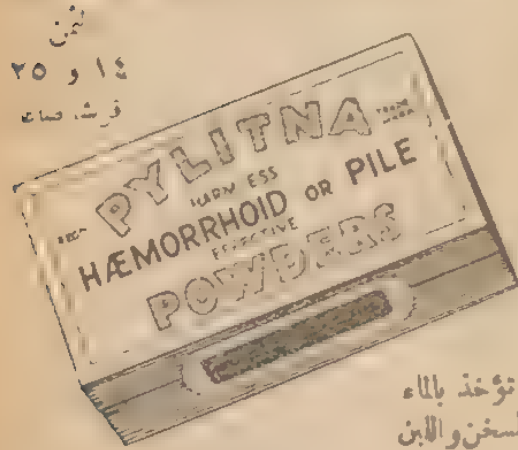 ثمن
١٤ و ٢٥
قرش صاغ
PYLITNA
TRADE MARK
HARMLESS
HÆMORRHOID OR PILE
EFFECTIVE
POWDERS
تؤخذ بالماء
السخن والابن